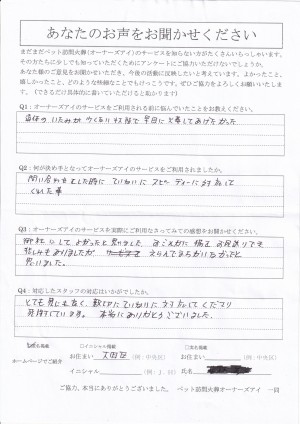 あなたのお声をお聞かせください
まだまだペット訪問火葬(オーナーズアイ)のサービスを知らない方がたくさんいらっしゃいます。
その方たちに少しでも知っていただくためにアンケートにご協力いただけないでしょうか。
あなた様のご意見をお聞かせいただき、今後の活動に反映したいと考えています。よかったこと、
嬉しかったこと、どのような些細なことでもけっこうです。ぜひご協力をよろしくお願いいたします。
(できるだけ具体的に書いていただけると助かります)
Q1：オーナーズアイのサービスをご利用される前に悩んでいたことをお教えください。
遺体のいたみが 少くない状態で 早目に 火葬してあげたかった
Q2：何が決め手となってオーナーズアイのサービスを利用されましたか。
問い合わせをした時に ていねいに スピーディーに対応して
くれた事
Q3：オーナーズアイのサービスを実際にご利用なさってみての感想をお聞かせください。
御社にして よかったと思いました
悲しみもありましたが えらんでまちがいなかったと
思いました。
Q4：対応したスタッフの対応はいかがでしたか。
とても 親切に ていねいに 対応してくださり
感謝しています。 本当にありがとうございました。
□イニシャル掲載 □匿名掲載
ホームページでご紹介
お住まい 大田区 (例：中央区) お住まい (例：中央区)
イニシャル (例：J．S) 氏名
ご協力、本当にありがとうございました。 ペット訪問火葬オーナーズアイ 一同